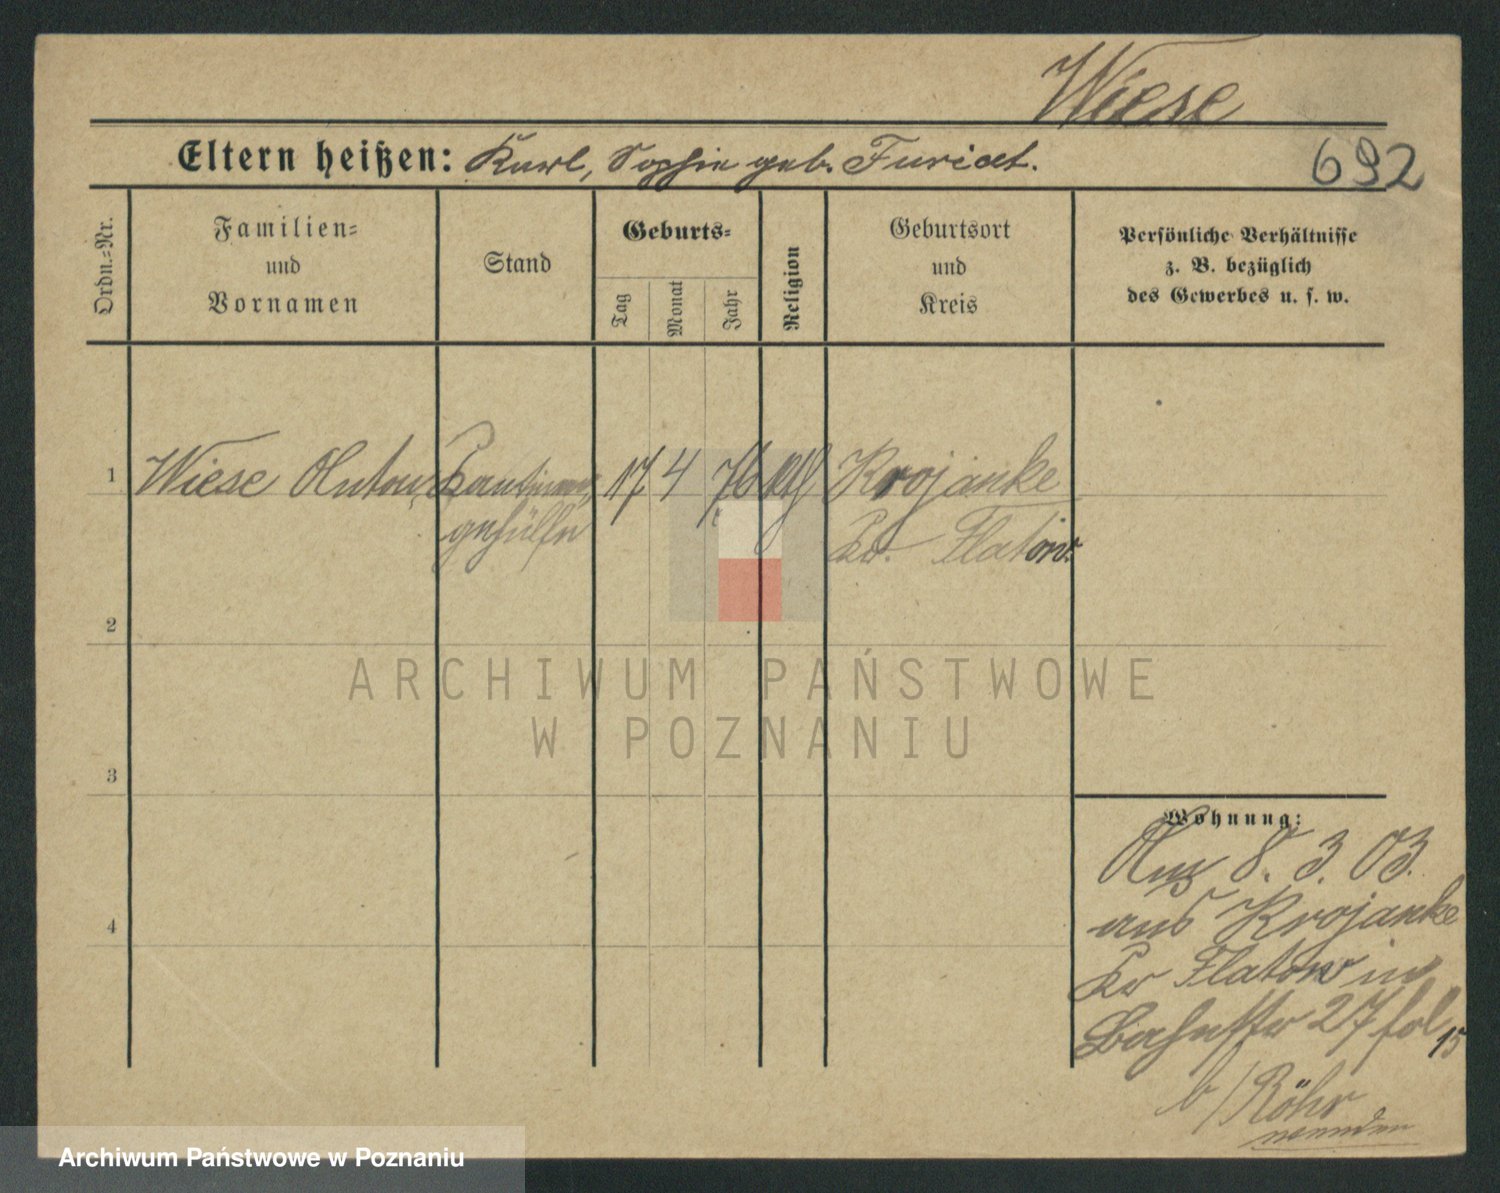 Wiese
692
Eltern heißen: Karl, Sophie geb. Furiat.
Ordn.-Nr.
Familien-
und
Vornamen
Stand
Geburts-
Tag
Monat
Jahr
Religion
Geburtsort
und
Kreis
Persönliche Verhältnisse
z. B. bezüglich
des Gewerbes u. s. w.
1
Wiese Anton
17 4 76
Krojanke
gehülfe
Kr. Flatow.
2
3
4
Wohnung:
Anz 8. 3. 03.
aus Krojanke
Kr Flatow in
Bahnstr 27 fol 15
b/Röhr
ARCHIWUM PAŃSTWOWE
W POZNANIU
Archiwum Państwowe w Poznaniu